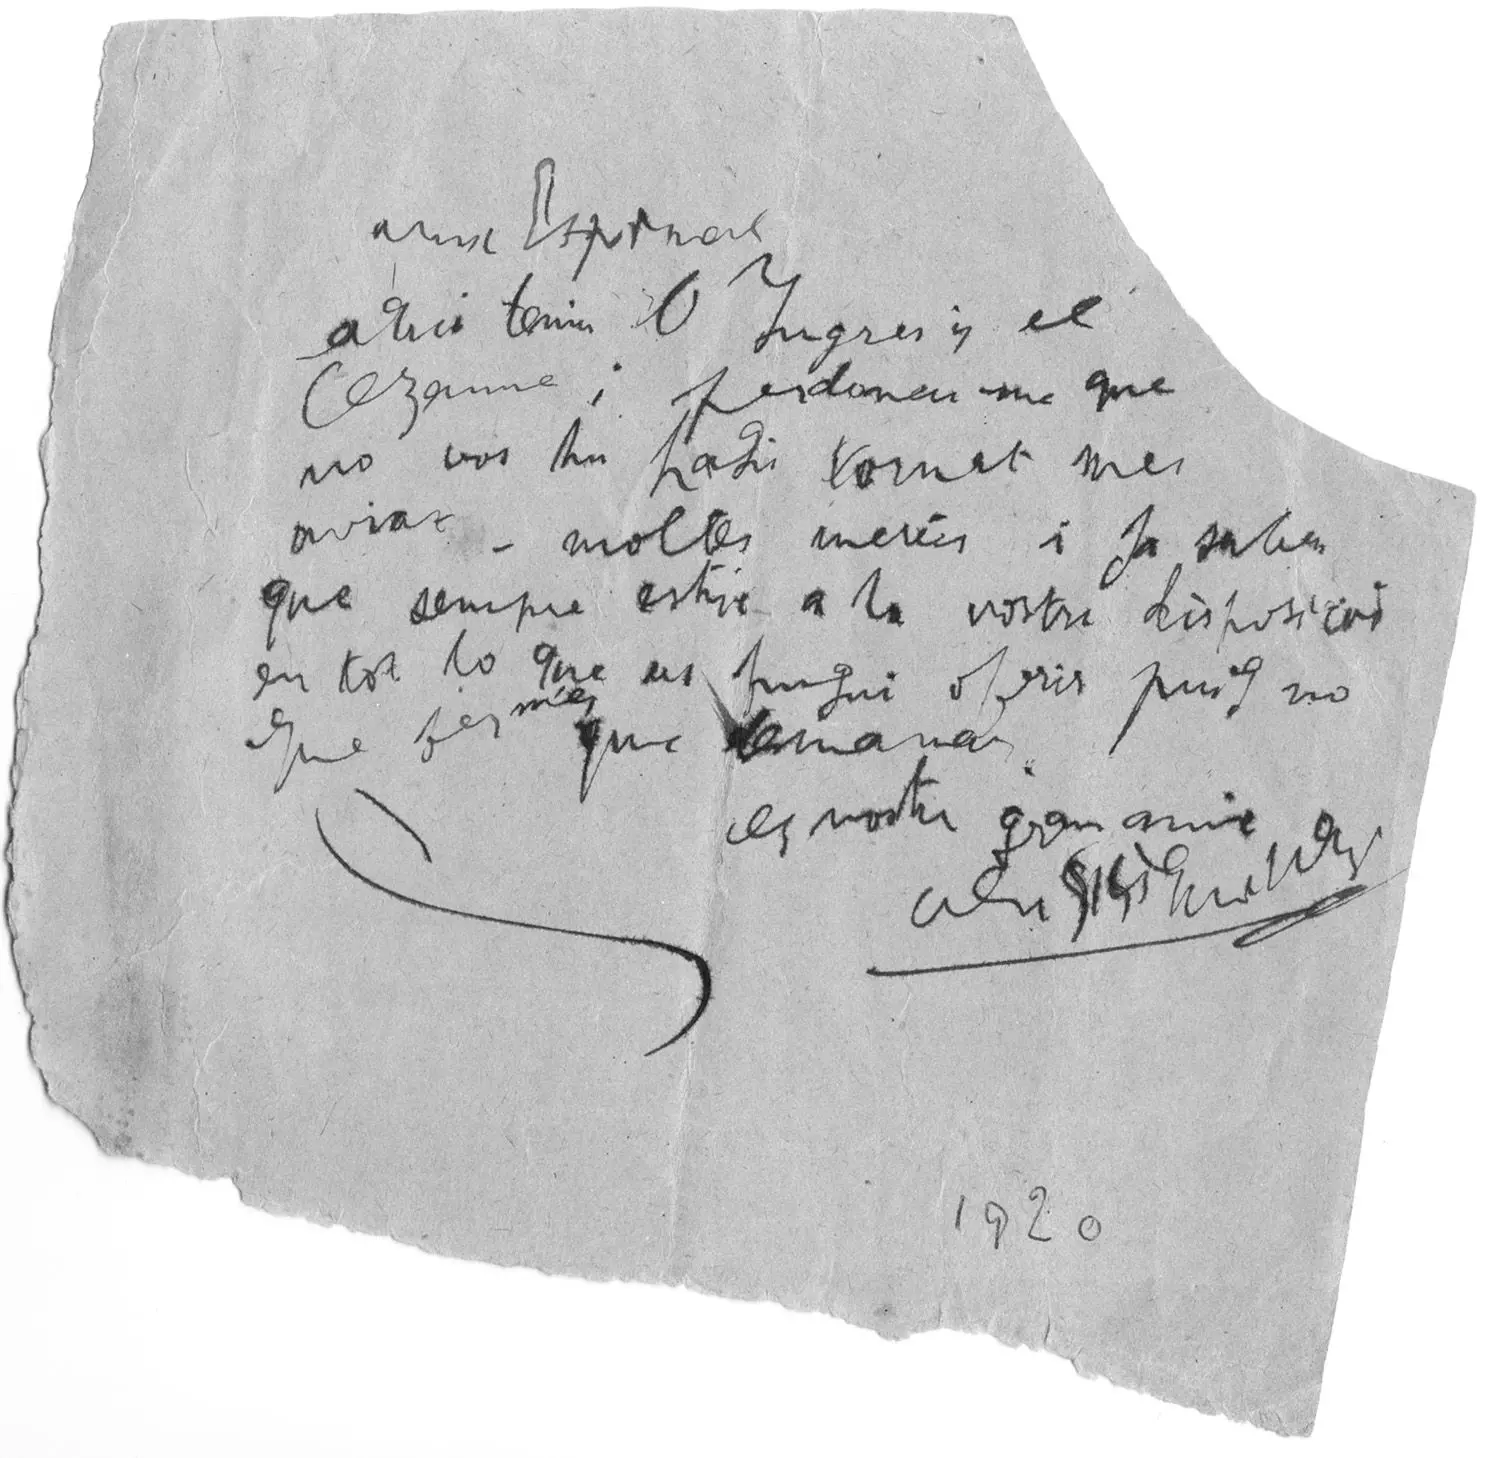 amic Espinal
aqui teniu l'Ingres y el
Cezanne i perdoneu-me que
no vos hu hagi tornat mes
aviat - moltes mercés i ja sabeu
que sempre estire a la vostra disposició
en tot lo que us pugui oferir puig no
que fer més que demanar
es vostre gran amic
1920